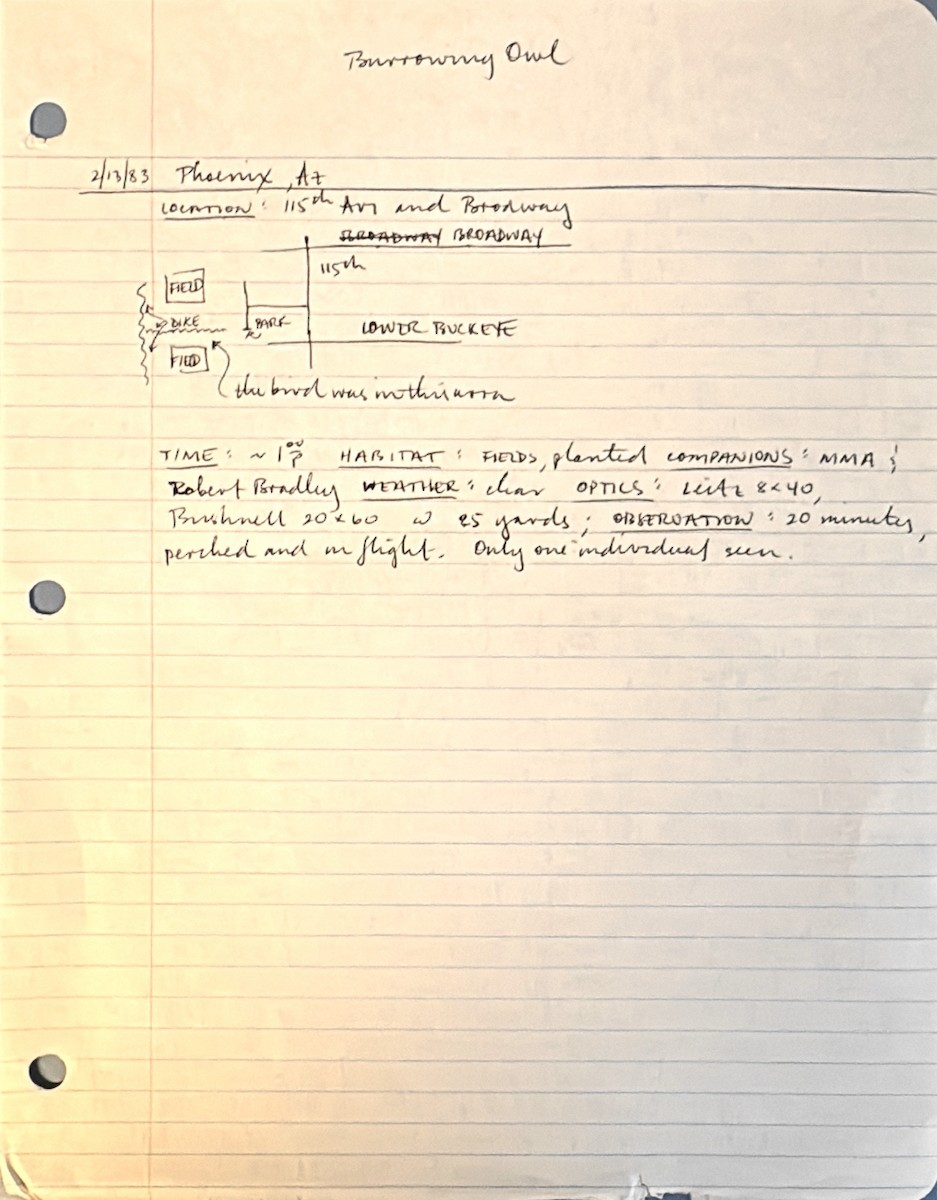 Burrowing Owl
2/13/83 Phoenix, Az
LOCATION: 115th Ave and Brodway
BROADWAY BROADWAY
115th
FIELD
DIKE
LOWER BUCKEYE
FIELD
the bird was in this area
TIME: ~ 1 00 P HABITAT: FIELDS, planted COMPANIONS: MMA &
Robert Bradley WEATHER: clear OPTICS: Leitz 8x40,
Bushnell 20x60 @ 25 yards; OBSERVATION: 20 minutes,
perched and in flight. Only one individual seen.